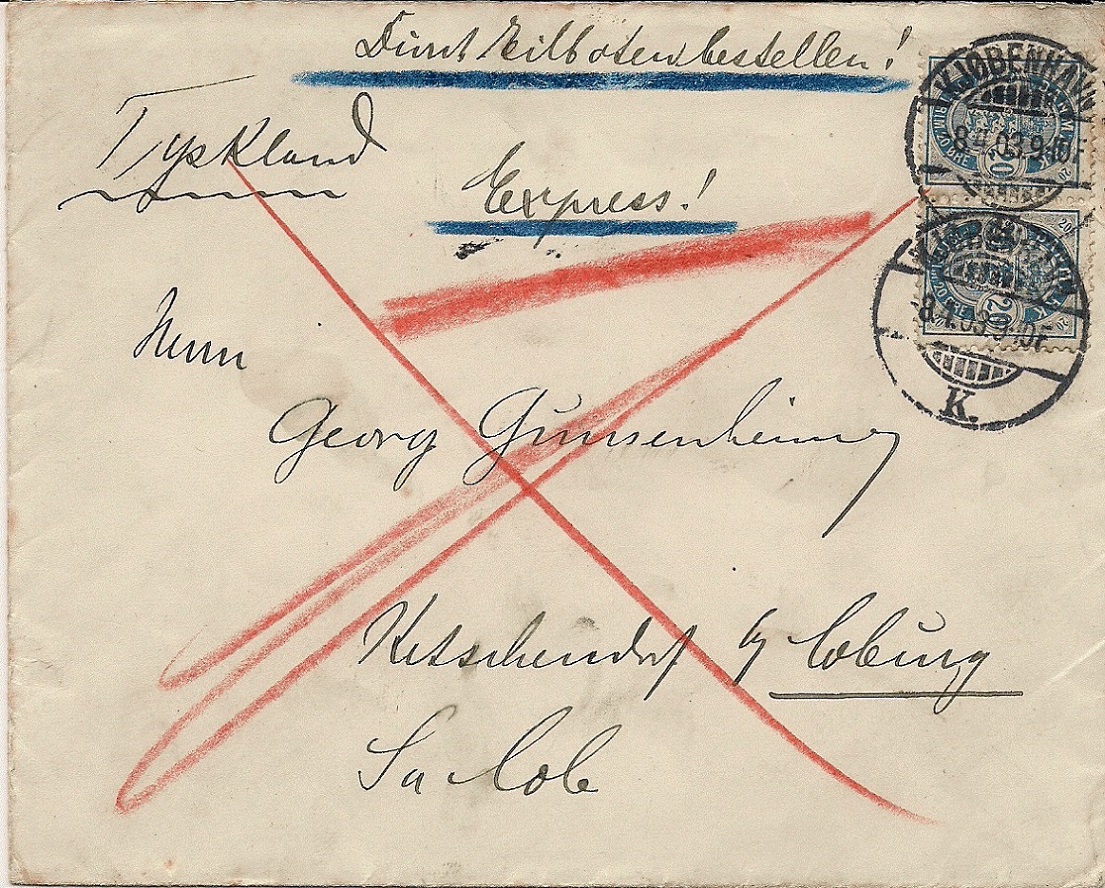 Durch Eilboten bestellen!
Tyskland
Express!
KJØBENHAVN
8.4.03.9-10F
20
KJØBENHAVN
8.4.03.9-10F
20 20
K.
Herrn
Georg Gunsenheimer
Ketschendorf b/ Coburg
Sa Cob